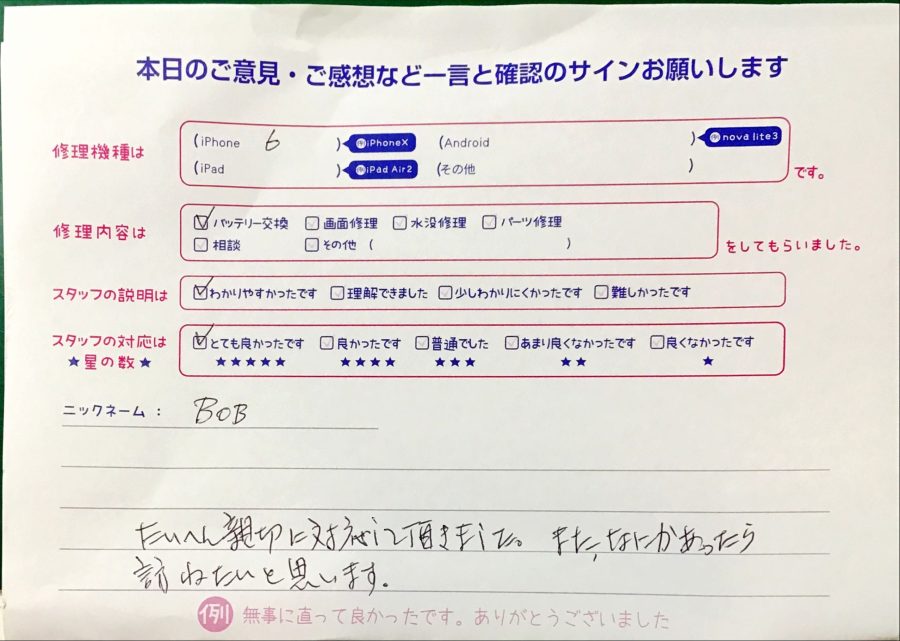 本日のご意見・ご感想など一言と確認のサインお願いします
修理機種は
(iPhone 6 ) 例iPhoneX (Android ) 例nova lite3
(iPad ) 例iPad Air2 (その他 )
です。
修理内容は
バッテリー交換 画面修理 水没修理 パーツ修理
相談 その他 ( )
をしてもらいました。
スタッフの説明は わかりやすかったです 理解できました 少しわかりにくかったです 難しかったです
スタッフの対応は とても良かったです 良かったです 普通でした あまり良くなかったです 良くなかったです
★星の数★ ★★★★★ ★★★★ ★★★ ★★ ★
ニックネーム: BOB
たいへん親切に対応して頂きました。また、なにかあったら
訪ねたいと思います。
例 無事に直って良かったです。ありがとうございました